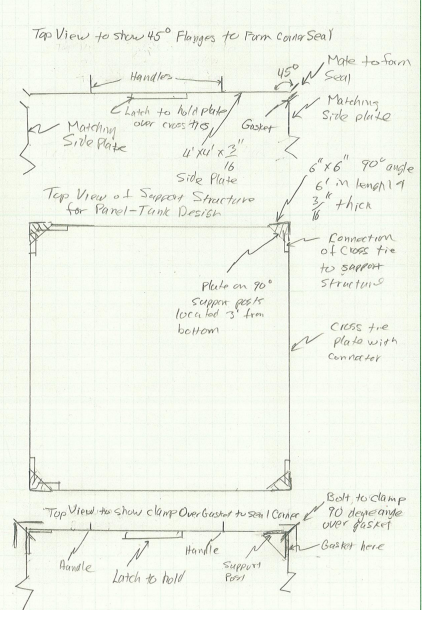 Top View to show 45° Flanges to Form Corner Seal
Handles
45°
Mate to form
Seal
Latch to hold plate
over cross ties
Gasket
Matching
Side plate
Matching
Side Plate
4'x4'x 3"/16
Side Plate
6"x6" 90° angle
6' in length &
3/16" thick
Top View of Support Structure
for Panel-Tank Design
Connection
of Cross tie
to support
structure
Plate on 90°
support posts
located 3' from
bottom
Cross tie
plate with
connector
Top View to show clamp Over Gasket to Seal
Bolt to clamp
90 degree angle
over gasket
Gasket here
Handle
Latch to hold
Handle
Support
Post